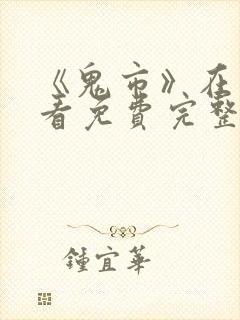 《鬼市》在
看免費完整
鍾宜華